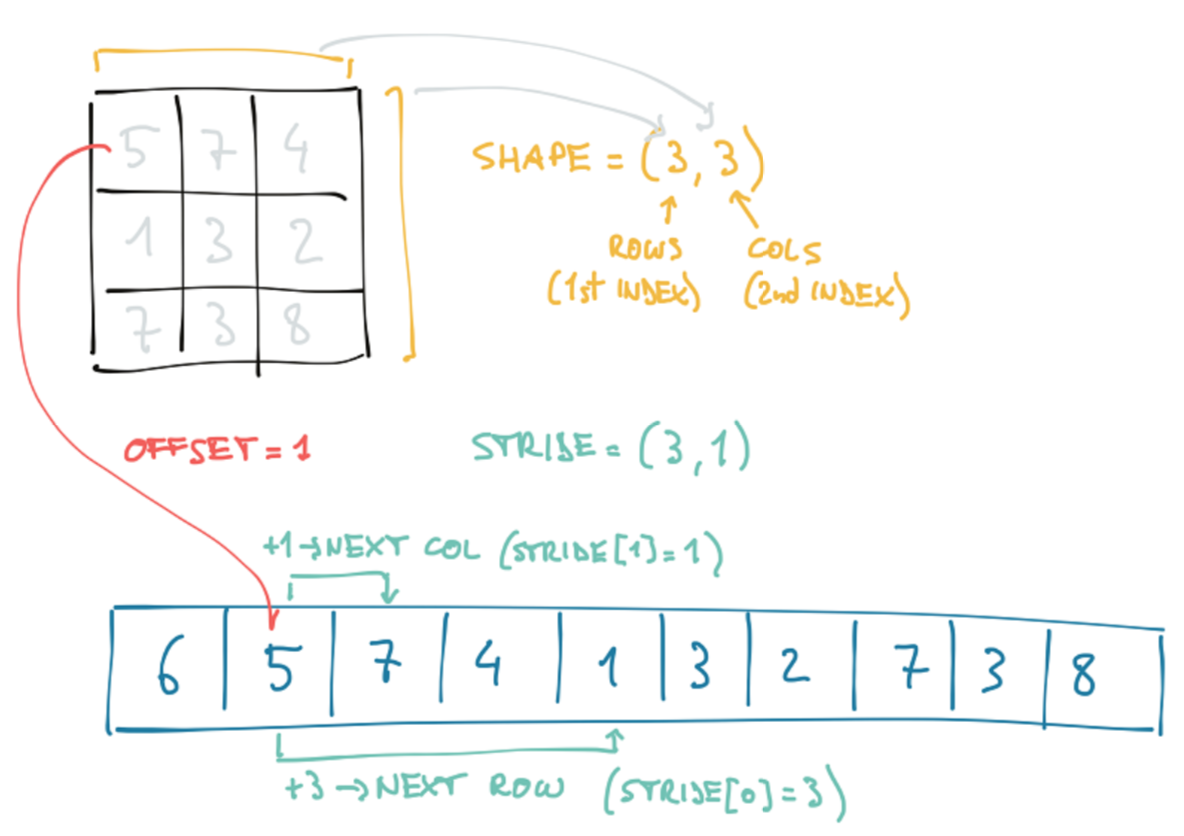 5 7 4
1 3 2
7 3 8
SHAPE = (3, 3)
ROWS
(1st INDEX)
COLS
(2nd INDEX)
OFFSET = 1
STRIDE = (3, 1)
+1→NEXT COL (STRIDE[1]=1)
6 5 7 4 1 3 2 7 3 8
+3→NEXT ROW (STRIDE[0]=3)